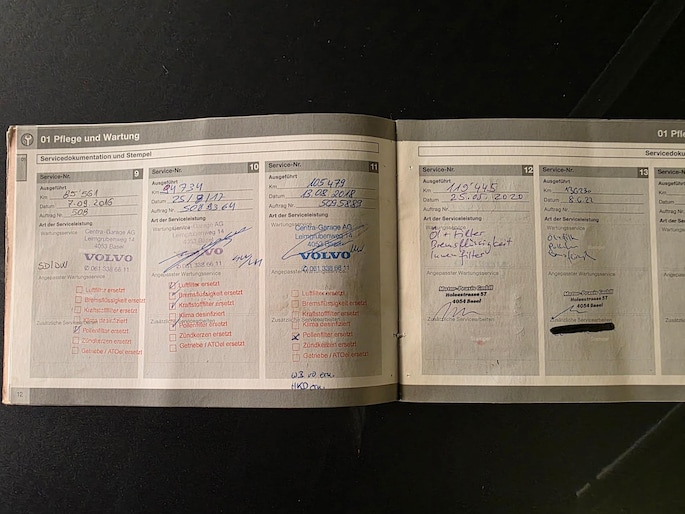 01 Pflege und Wartung
Servicedokumentation und Stempel
Service-Nr. 9
Ausgeführt
Km 85'561
Datum 7.09.2016
Auftrag Nr. 508
Art der Serviceleistung
Wartungsservice
Centra-Garage AG
Leimgrubenweg 14
4053 Basel
VOLVO
✆ 061 338 66 11
Angepasster Wartungsservice
Luftfilter ersetzt
Bremsflüssigkeit ersetzt
Kraftstofffilter ersetzt
Klima desinfiziert
Zusätzliche Servicearbeiten
Pollenfilter ersetzt
Zündkerzen ersetzt
Getriebe / ATOel ersetzt
12
Service-Nr. 10
Ausgeführt
Km 94'734
Datum
Auftrag Nr.
Art der Serviceleistung
Wartungsservice
Centra-Garage AG
Leimgrubenweg 14
4053 Basel
VO
✆ 061 338 66 11
Angepasster Wartungsservice
Luftfilter ersetzt
Bremsflüssigkeit ersetzt
Kraftstofffilter ersetzt
Klima desinfiziert
Zusätzliche Servicearbeiten
Pollenfilter ersetzt
Zündkerzen ersetzt
Getriebe / ATOel ersetzt
Service-Nr. 11
Ausgeführt
Km 105'479
Datum 13.08.2018
Auftrag Nr. 5095889
Art der Serviceleistung
Wartungsservice
Centra-Garage AG
Leimgrubenweg 14
4053 Basel
VOLVO
✆ 061 338 66 11
Angepasster Wartungsservice
Luftfilter ersetzt
Bremsflüssigkeit ersetzt
Kraftstofffilter ersetzt
Klima desinfiziert
Zusätzliche Servicearbeiten
Pollenfilter ersetzt
Zündkerzen ersetzt
Getriebe / ATOel ersetzt
01 Pfl
Servicedoku
Service-Nr. 12
Ausgeführt
Km 112'445
Datum 25.05.2020
Auftrag Nr.
Art der Serviceleistung
Wartungsservice
Öl + Filter
Bremsflüssigkeit
Innenfilter
Angepasster Wartungsservice
Motor-Praxis GmbH
Holeestrasse 57
4054 Basel
Zusätzliche Servicearbeiten
Service-Nr. 13
Ausgeführt
Km
Datum 8.6.22
Auftrag Nr.
Art der Serviceleistung
Wartungsservice
Angepasster Wartungsservice
Motor-Praxis GmbH
Holeestrasse 57
4054 Basel
Zusätzliche Servicearbeiten
Service-N
Ausgeführt
Km
Datum
Auftrag Nr.